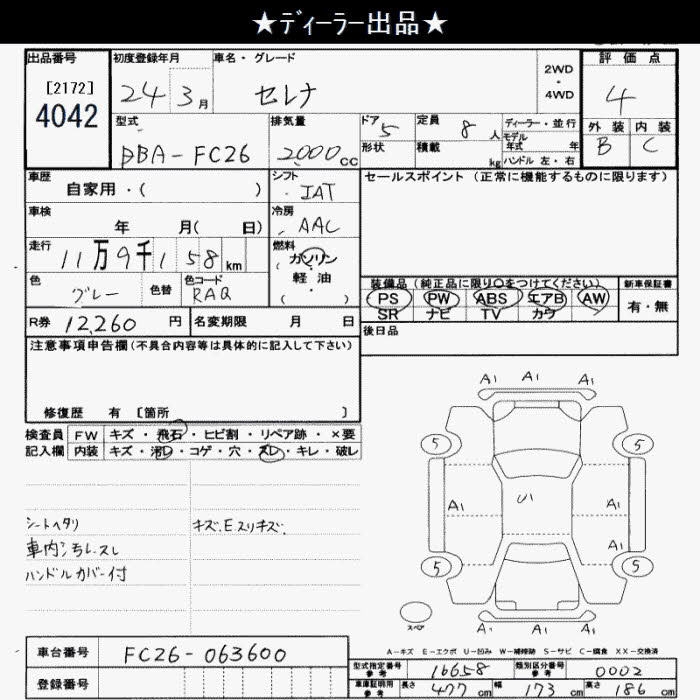 ★ディーラー出品★
出品番号
[2172]
4042
初度登録年月
24 3月
車名・グレード
セレナ
2WD
・
4WD
評価点
4
外装 内装
B C
型式
DBA-FC26
排気量
2000cc
ドア 5
形状
定員 8人
積載 kg
ディーラー・並行
モデル
年式 年
ハンドル 左・右
車歴
自家用・( )
シフト
IAT
セールスポイント(正常に機能するものに限ります)
車検
年 月( 日)
冷房
AAC
走行
11万9千158km
燃料
ガソリン
・
軽油
( ・ )
色
グレー
色替
色コード
RAQ
装備品(純正品に限り○をつけてください)
新車保証書
PS PW ABS エアB AW
有・無
SR ナビ TV カワ
R券 12,260円
名変期限 月 日
後日品
注意事項申告欄(不具合内容等は具体的に記入して下さい)
修復歴 有 [箇所 ]
検査員
記入欄
FW キズ・飛石・ヒビ割・リペア跡・×要
内装 キズ・汚レ・コゲ・穴・スレ・キレ・破レ
シートヘタリ
車内シミ汚レスレ
ハンドルカバー付
キズ、E、スリキズ、
A1 A1 A1
5 5
A1 U1 A1
A1
5 5
スペア
A1 A1 A1
A-キズ E-エクボ U-凹み W-補修跡 S-サビ C-腐食 XX-交換済
車台番号 FC26-063600
登録番号
型式指定番号
参考
16658
類別区分番号
参考
0002
車庫証明用
参考
長さ 477cm 幅 173cm 高さ 186cm